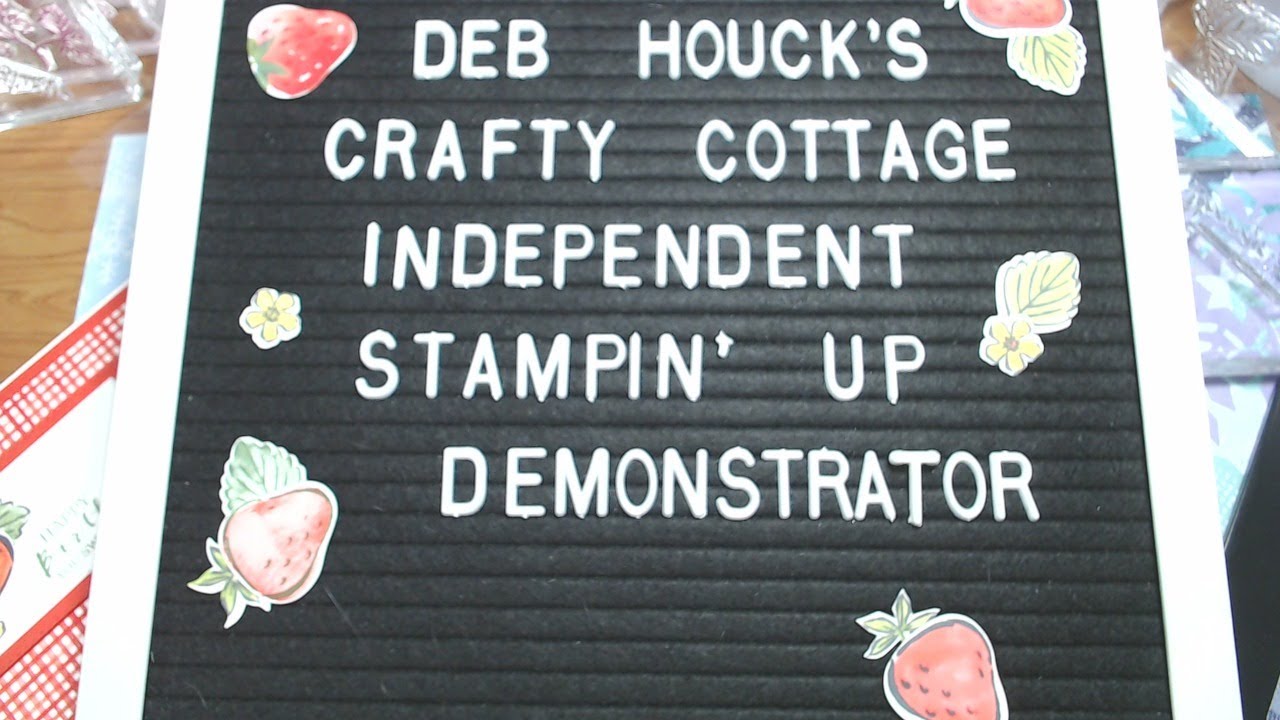 DEB HOUCK'S
CRAFTY COTTAGE
INDEPENDENT
STAMPIN' UP
DEMONSTRATOR